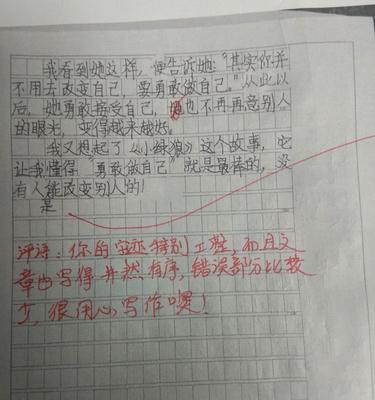 我看到她这样，便告诉她："其实你并
不用去改变自己，要勇敢做自己。"从此以
后，她勇敢接受自己，她也不再再意别人
的眼光，变得越来越好。
我又想起了《小绿狼》这个故事，它
让我懂得"勇敢做自己"就是最棒的，没
有人能改变别人的！
是
评语：你的字迹特别工整，而且文
章也写得井然有序，错误部分比较
少，很用心写作噢！